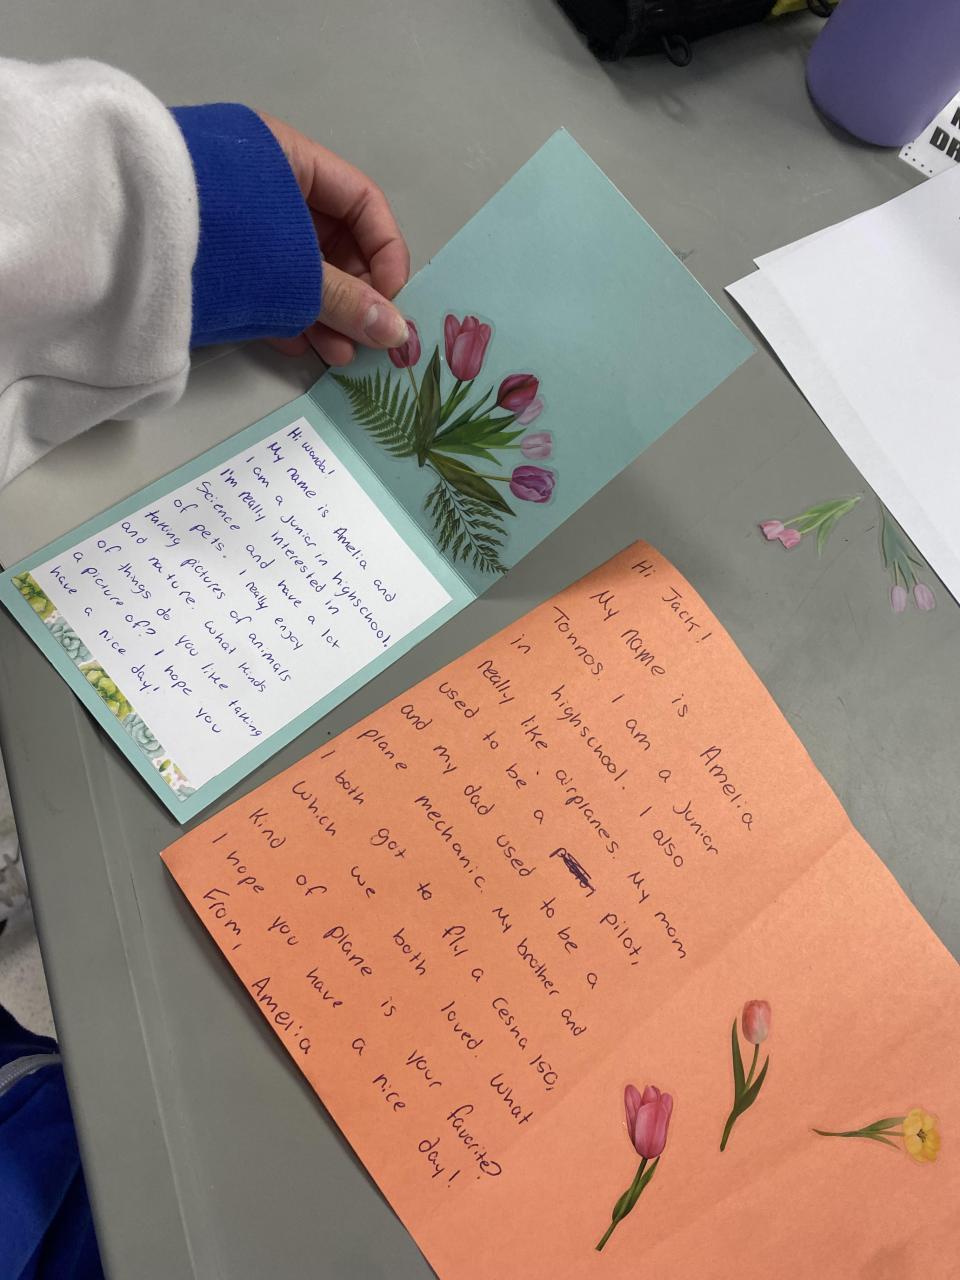 Hi wanda!
My name is Amelia and
I am a junior in highschool.
I'm really interested in
Science and have a lot
of pets. I really enjoy
taking pictures of animals
and nature. What kinds
of things do you like taking
a picture of? I hope you
have a nice day!
Hi Jack!
My name is Amelia
Tonnos. I am a junior
in highschool. I also
really like airplanes. My mom
used to be a pilot,
and my dad used to be a
plane mechanic. My brother and
I both got to fly a Cesna 150,
Which we both loved. What
Kind of plane is your favorite?
I hope you have a nice day!
From, Amelia